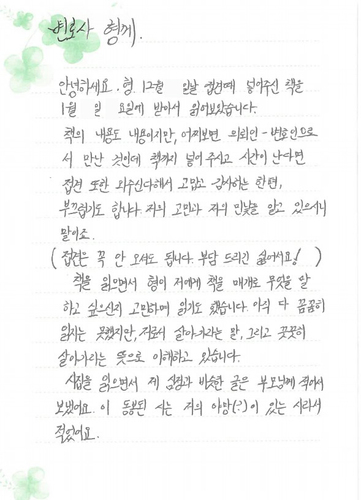 변호사 형께.
안녕하세요. 형 12월 일날 접견때 넣어주신 책을
1월 일 요일에 받아서 읽어보았습니다.
책의 내용도 내용이지만, 어찌보면 의뢰인-변호인으로
서 만난 것인데 책까지 넣어 주시고 시간이 난다면
접견 또한 와주신다해서 고맙고 감사하는 한편,
부끄럽기도 합니다. 저의 고민과 저의 민낯을 알고 있으시니
말이죠.
(접견은 꼭 안 오셔도 됩니다. 부담 드리긴 싫어서요!)
책을 읽으면서 형이 저에게 책을 매개로 무엇을 말
하고 싶으신지 고민하며 읽기도 했습니다. 아직 다 꼼꼼히
읽지는 못했지만, 살아가라는 말, 그리고 꿋꿋이
살아가라는 뜻으로 이해하고 있습니다.
시집을 읽으면서 제 심정과 비슷한 글은 부모님께 적어서
보냈어요. 이 동봉된 시는 저의 야망(?)이 있는 시라서
적었어요.